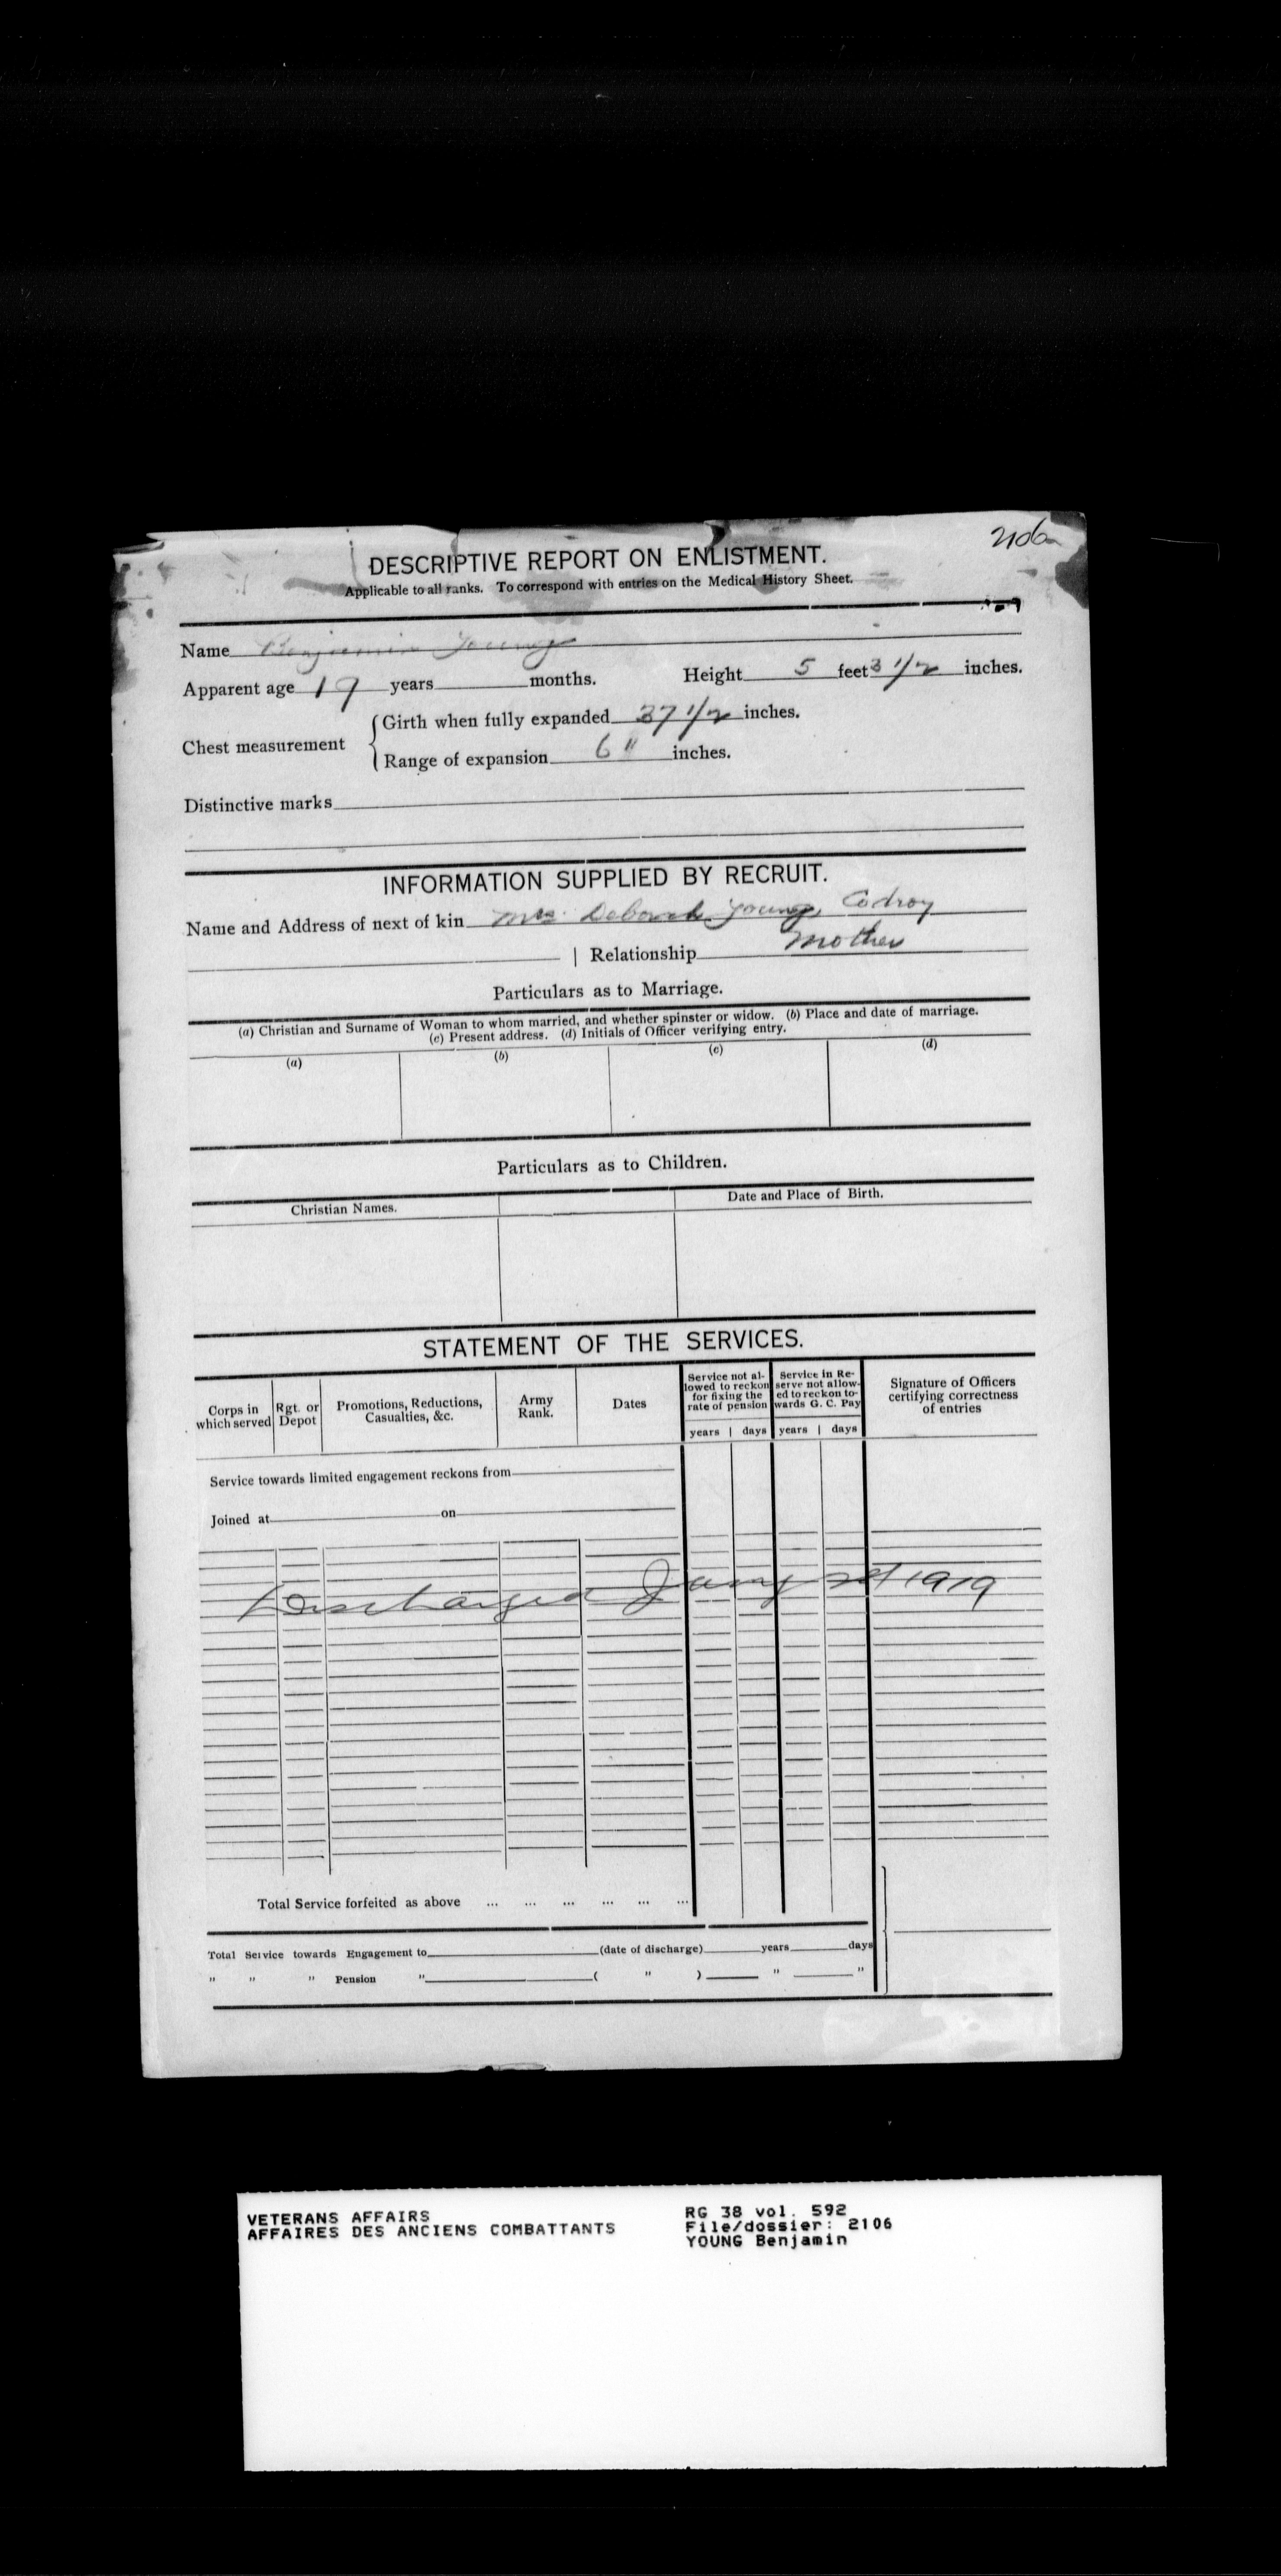 2106
DESCRIPTIVE REPORT ON ENLISTMENT.
Applicable to all ranks. To correspond with entries on the Medical History Sheet.
Name Benjamin Young
Apparent age 19 years months. Height 5 feet 3 1/2 inches.
Chest measurement
Girth when fully expanded 37 1/2 inches.
Range of expansion 6 " inches.
Distinctive marks
INFORMATION SUPPLIED BY RECRUIT.
Name and Address of next of kin Mrs Deborah Young, Codroy
| Relationship Mother
Particulars as to Marriage.
(a) Christian and Surname of Woman to whom married, and whether spinster or widow. (b) Place and date of marriage.
(c) Present address. (d) Initials of Officer verifying entry.
(a) (b) (c) (d)
Particulars as to Children.
Christian Names. Date and Place of Birth.
STATEMENT OF THE SERVICES.
Corps in which served Rgt. or Depot Promotions, Reductions, Casualties, &c. Army Rank. Dates Service not allowed to reckon for fixing the rate of pension Service in Reserve not allowed to reckon towards G. C. Pay Signature of Officers certifying correctness of entries
years | days years | days
Service towards limited engagement reckons from
Joined at on
Discharged Jany 1919
Total Service forfeited as above ... ... ... ... ... ...
Total Service towards Engagement to (date of discharge) years days
" " " Pension " ( " ) " "
VETERANS AFFAIRS
AFFAIRES DES ANCIENS COMBATTANTS
RG 38 vol. 592
File/dossier: 2106
YOUNG Benjamin